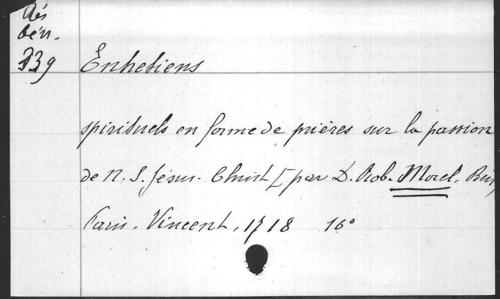 Rés
bén.
239
Entretiens
spirituels en forme de prières sur la passion
de N. S. Jésus-Christ [par D. Rob. Morel. Bén
Paris. Vincent, 1718 16°